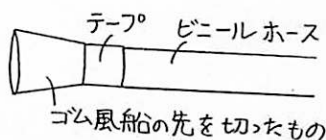 テープ
ビニールホース
ゴム風船の先を切ったもの